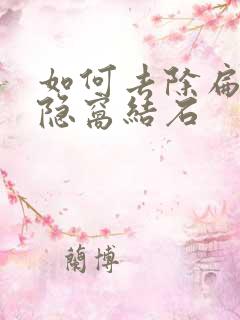 如何去除扁
隐窝结石
蘭博